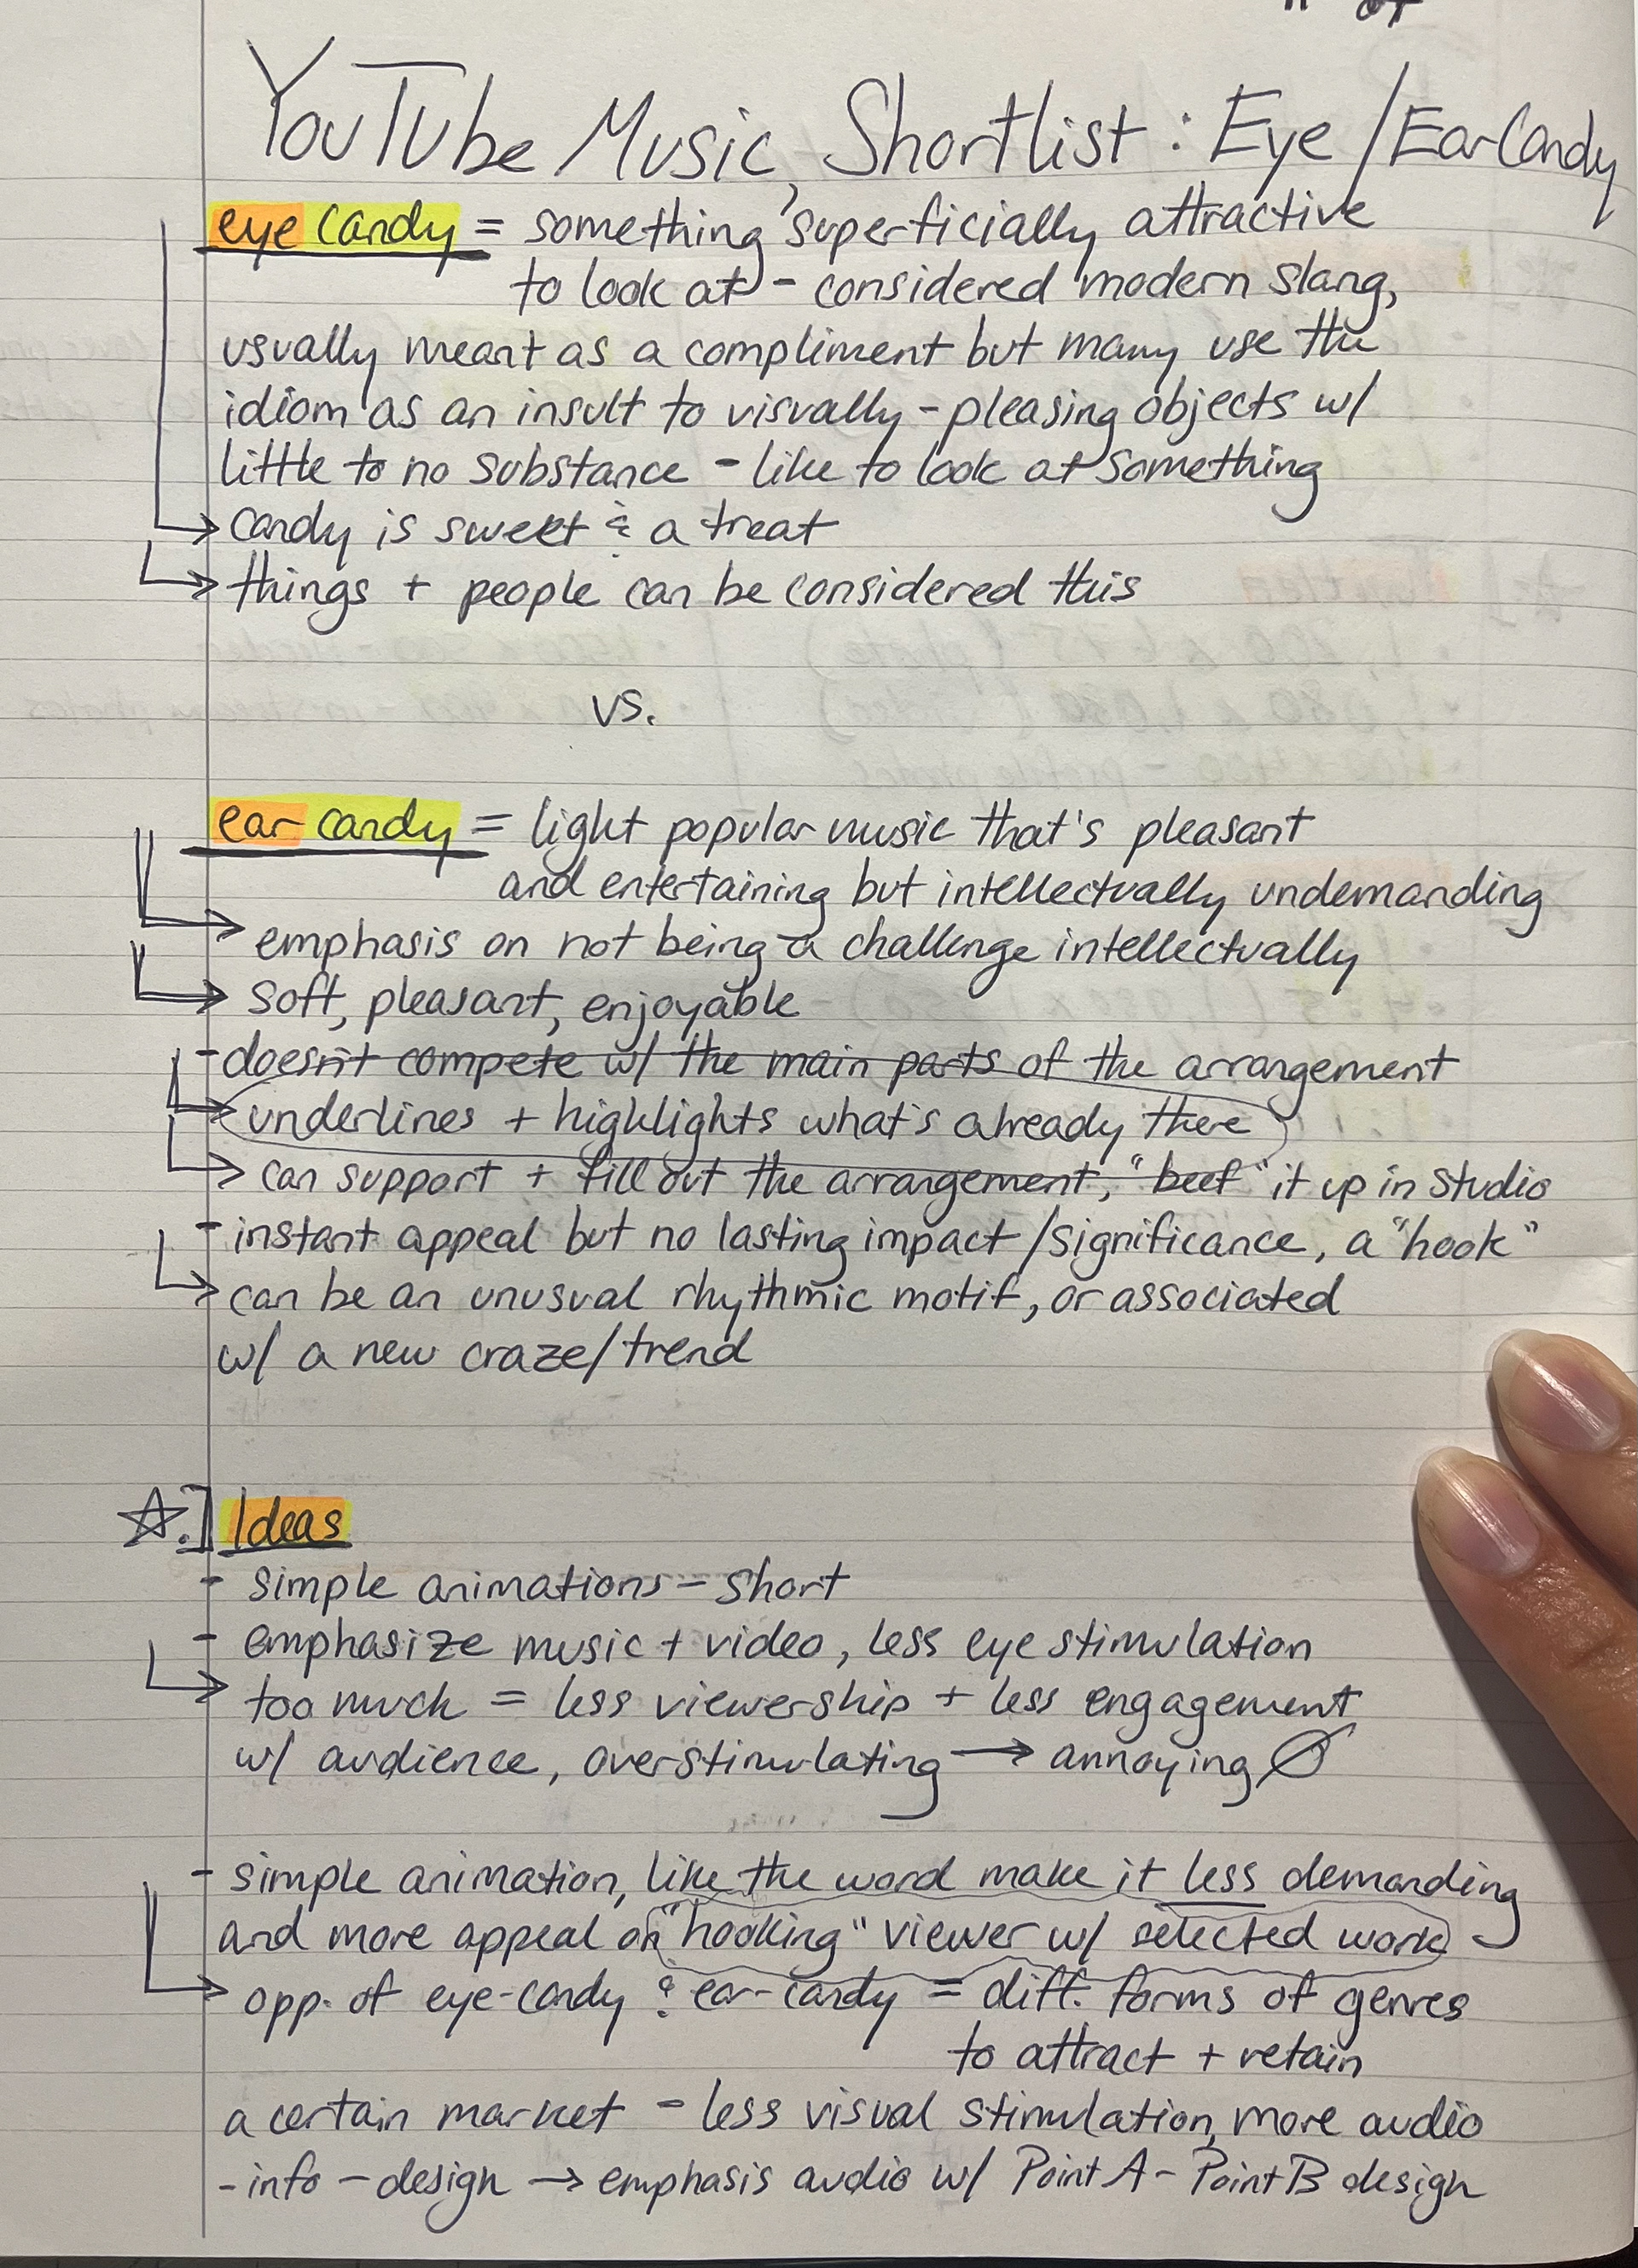 YouTube Music Shortlist: Eye/EarCandy
eye candy = something superficially attractive
to look at - considered modern slang,
usually meant as a compliment but many use the
idiom as an insult to visually-pleasing objects w/
little to no substance - like to look at something
→ candy is sweet & a treat
→ things + people can be considered this
vs.
ear candy = light popular music that's pleasant
and entertaining but intellectually undemanding
→ emphasis on not being a challenge intellectually
→ soft, pleasant, enjoyable
- doesn't compete w/ the main parts of the arrangement
→ underlines + highlights what's already there
→ can support + fill out the arrangement, "beef" it up in studio
- instant appeal but no lasting impact/significance, a "hook"
→ can be an unusual rhythmic motif, or associated
w/ a new craze/trend
☆.] Ideas
- simple animations - short
- emphasize music + video, less eye stimulation
→ too much = less viewership + less engagement
w/ audience, overstimulating → annoying
- simple animation, like the word make it less demanding
and more appeal on "hooking" viewer w/ selected work
→ opp. of eye-candy & ear-candy = diff. forms of genres
to attract + retain
a certain market - less visual stimulation, more audio
- info - design → emphasis audio w/ Point A - Point B design